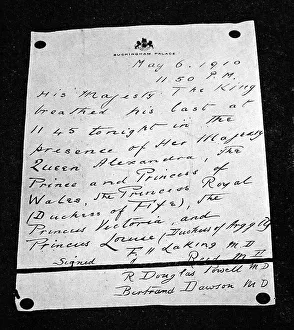 BUCKINGHAM PALACE
May 6. 1910
11 50 P.M.
His Majesty The King
breathed his last at
11 45 tonight in the
presence of Her Majesty
Queen Alexandra, The
Prince and Princess of
Wales, The Princess Royal
(Duchess of Fife), The
Princess Victoria, and
Princess Louise (Duchess of Argyll)
Signed F. H Laking M D
Reid M D
R Douglas Powell M D
Bertrand Dawson M D